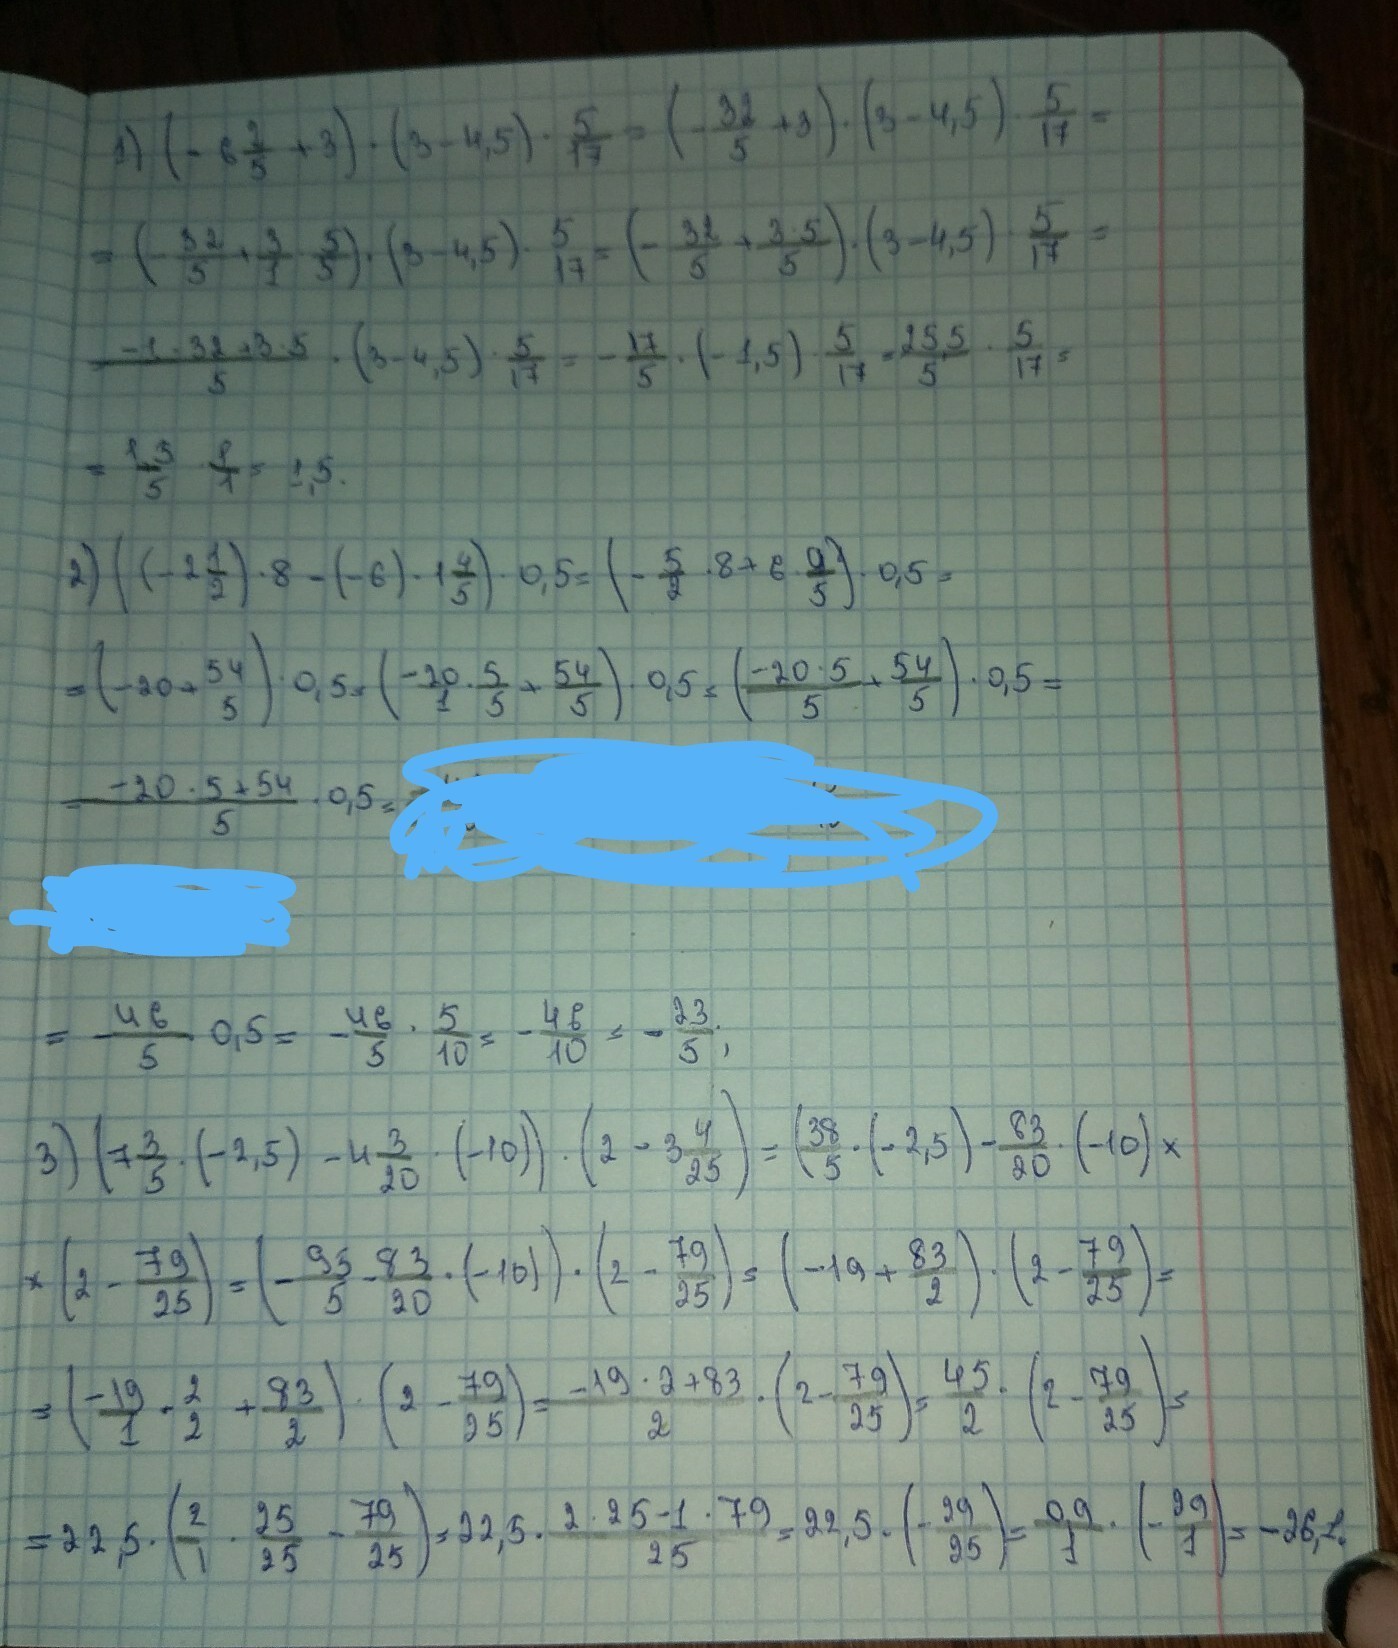 1) (-6 2/5 + 3) · (3 - 4,5) · 5/17 = (-32/5 + 3) · (3 - 4,5) · 5/17 =
= (-32/5 + 3/1 · 5/5) · (3 - 4,5) · 5/17 = (-32/5 + 3·5/5) · (3 - 4,5) · 5/17 =
= -1·32+3·5/5 · (3 - 4,5) · 5/17 = -17/5 · (-1,5) · 5/17 = 25,5/5 · 5/17 =
= 1,5/5 · 5/1 = 1,5.
2) ((-2 1/2) · 8 - (-6) · 1 4/5) · 0,5 = (-5/2 · 8 + 6 · 9/5) · 0,5 =
= (-20 + 54/5) · 0,5 = (-20/1 · 5/5 + 54/5) · 0,5 = (-20·5/5 + 54/5) · 0,5 =
= -20·5+54/5 · 0,5 =
= -46/5 · 0,5 = -46/5 · 5/10 = -46/10 = -23/5;
3) (7 3/5 · (-2,5) - 4 3/20 · (-10)) · (2 - 3 4/25) = (38/5 · (-2,5) - 83/20 · (-10) ×
× (2 - 79/25) = (-95/5 - 83/20 · (-10)) · (2 - 79/25) = (-19 + 83/2) · (2 - 79/25) =
= (-19/1 · 2/2 + 83/2) · (2 - 79/25) = -19·2+83/2 · (2 - 79/25) = 45/2 · (2 - 79/25) =
= 22,5 · (2/1 · 25/25 - 79/25) = 22,5 · 2·25-1·79/25 = 22,5 · (-29/25) = 0,9/1 · (-29/1) = -26,1.